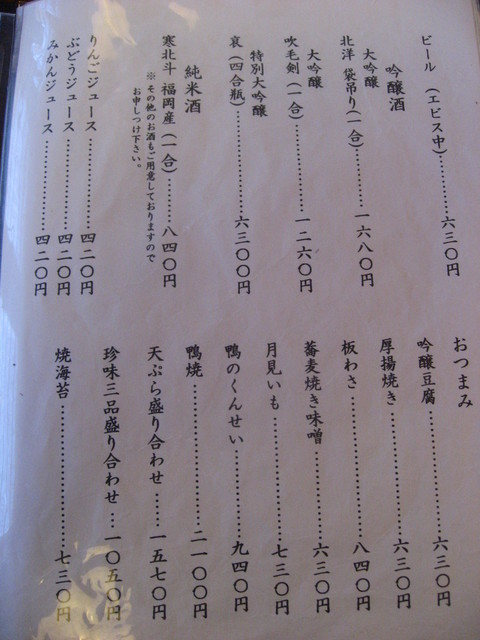 ビール　(エビス中)……六三〇円
吟醸酒
大吟醸
北洋 袋吊り(一合)……一六八〇円
大吟醸
吹毛剣(一合)……一二六〇円
特別大吟醸
哀(四合瓶)……六三〇〇円
純米酒
寒北斗 福岡産(一合)……八四〇円
※その他のお酒もご用意しておりますので
お申しつけ下さい。
りんごジュース……四二〇円
ぶどうジュース……四二〇円
みかんジュース……四二〇円
おつまみ
吟醸豆腐……六三〇円
厚揚焼き……六三〇円
板わさ……八四〇円
蕎麦焼き味噌……六三〇円
月見いも……七三〇円
鴨のくんせい……九四〇円
鴨焼……二一〇〇円
天ぷら盛り合わせ……一五七〇円
珍味三品盛り合わせ…一〇五〇円
焼海苔……七三〇円